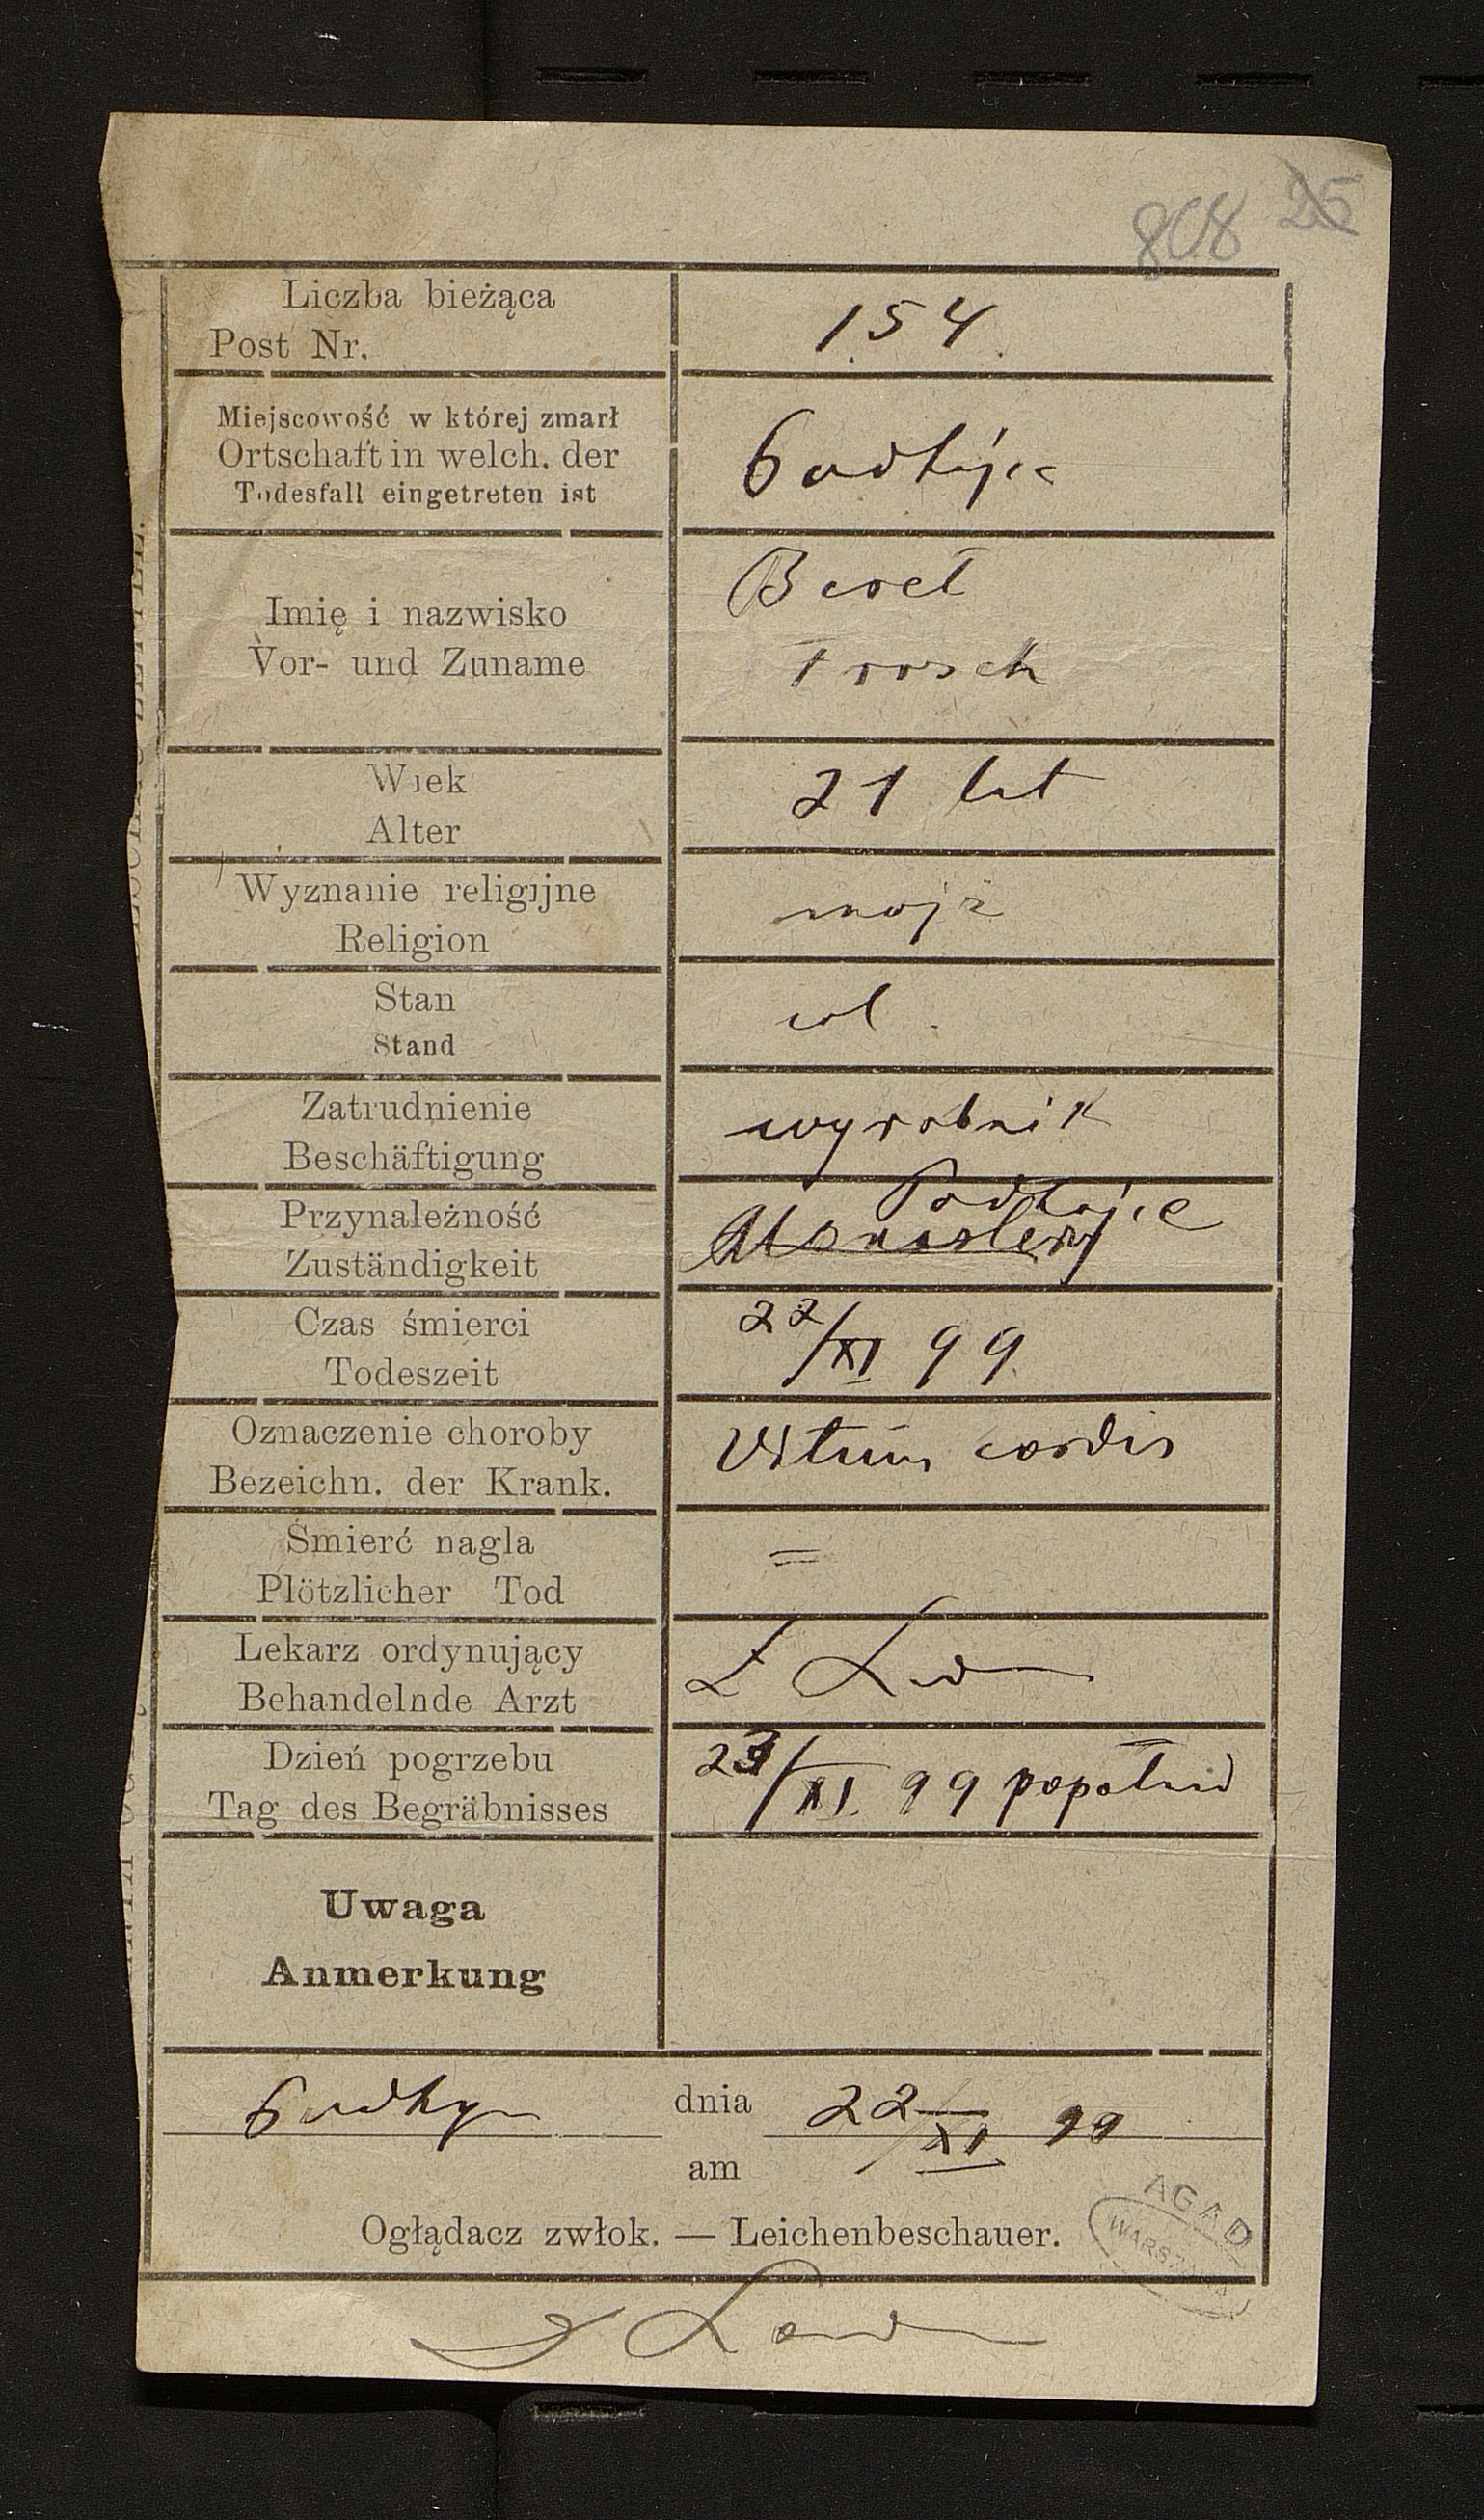 808 25
Liczba bieżąca
Post Nr.
154
Miejscowość w której zmarł
Ortschaft in welch. der
Todesfall eingetreten ist
Podhajce
Imię i nazwisko
Vor- und Zuname
Berel
Frosch
Wiek
Alter
21 lat
Wyznanie religijne
Religion
mojż
Stan
Stand
wol.
Zatrudnienie
Beschäftigung
wyrobnik
Przynależność
Zuständigkeit
Podhajce
Czas śmierci
Todeszeit
22/XI 99
Oznaczenie choroby
Bezeichn. der Krank.
Vitium cordis
Śmierć nagla
Plötzlicher Tod
=
Lekarz ordynujący
Behandelnde Arzt
Dzień pogrzebu
Tag des Begräbnisses
23/XI. 99 popołud
Uwaga
Anmerkung
Podhajce dnia 22/XI 99
am
Oglądacz zwłok. — Leichenbeschauer.
AGAD
WARSZAWA